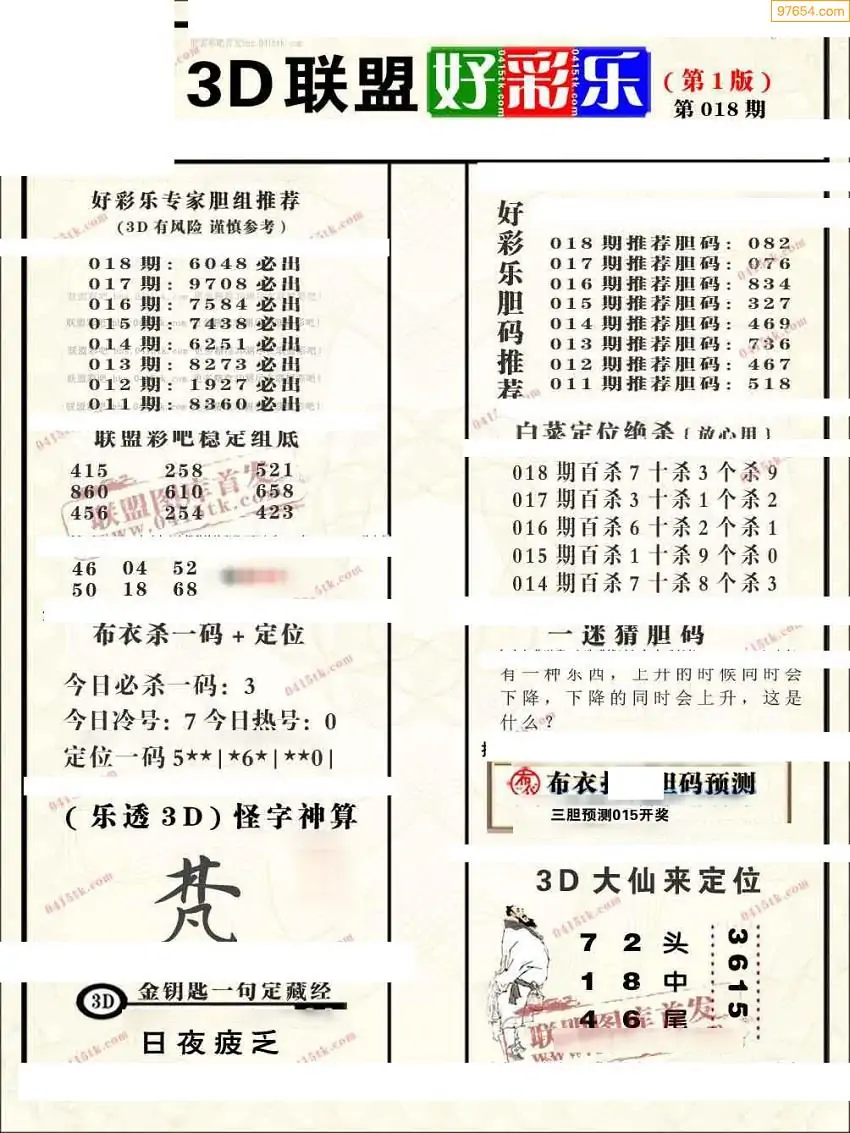 97654.com
3D联盟 好彩乐 (第1版)
第018期
好彩乐专家胆组推荐
(3D有风险 谨慎参考)
018期: 6048必出
017期: 9708必出
016期: 7584必出
015期: 7438必出
014期: 6251必出
013期: 8273必出
012期: 1927必出
011期: 8360必出
联盟彩吧稳定组底
415 258 521
860 610 658
456 254 423
46 04 52
50 18 68
布衣杀一码+定位
今日必杀一码: 3
今日冷号: 7 今日热号: 0
定位一码5**|*6*|**0|
(乐透3D)怪字神算
梵
3D 金钥匙一句定藏经
日夜疲乏
好彩乐胆码推荐
018期推荐胆码: 082
017期推荐胆码: 076
016期推荐胆码: 834
015期推荐胆码: 327
014期推荐胆码: 469
013期推荐胆码: 736
012期推荐胆码: 467
011期推荐胆码: 518
白菜定位绝杀{放心用}
018期百杀7十杀3个杀9
017期百杀3十杀1个杀2
016期百杀6十杀2个杀1
015期百杀1十杀9个杀0
014期百杀7十杀8个杀3
一迷猜胆码
有一种东西，上升的时候同时会
下降，下降的同时会上升，这是
什么?
布衣 胆码预测
三胆预测015开奖
3D大仙来定位
7 2 头
1 8 中
4 6 尾
3615
联盟图库首发
www.0415tk.com
0415tk.com